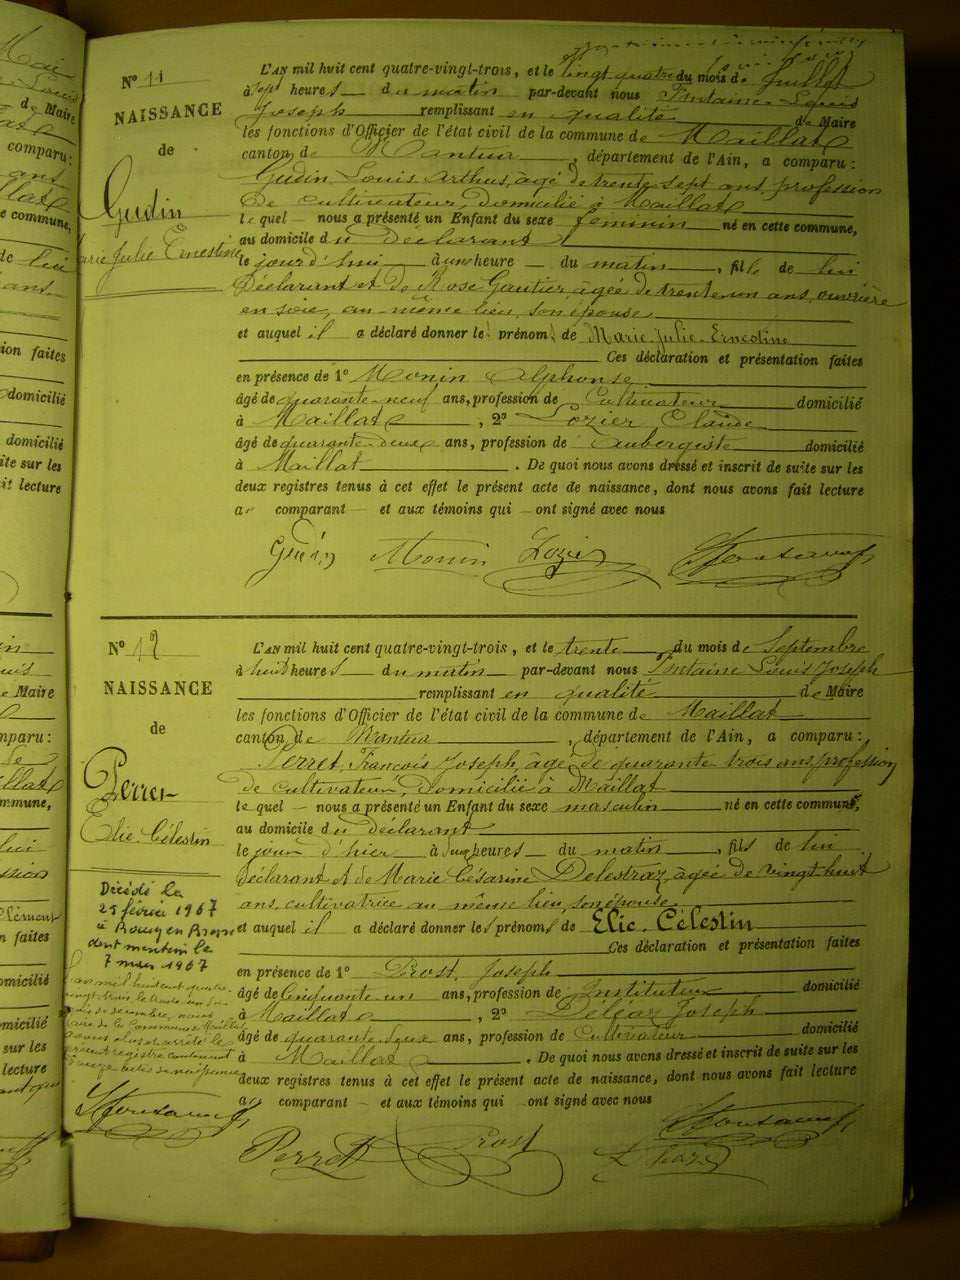 Nº 11
NAISSANCE
de
Gudin
Marie Julie Ernestine
L'AN mil huit cent quatre-vingt-trois, et le vingt quatre du mois de Juillet
à sept heures du matin par-devant nous Fontaine Louis
Joseph remplissant en qualité de Maire
les fonctions d'Officier de l'état civil de la commune de Maillat
canton de Nantua, département de l'Ain, a comparu :
Gudin Louis Arthus, âgé de trente sept ans, profession
de cultivateur, domicilié à Maillat
lequel nous a présenté un Enfant du sexe féminin né en cette commune,
au domicile du déclarant
le jour d'hui à une heure du matin, fille de lui
Déclarant et de Rose Gautier âgée de trente un ans, ouvrière
en soie, au même lieu, son épouse
et auquel il a déclaré donner les prénoms de Marie Julie Ernestine
Ces déclaration et présentation faites
en présence de 1º Monin Alphonse
âgé de quarante-neuf ans, profession de Cultivateur domicilié
à Maillat, 2º Lozier Claude
âgé de quarante-deux ans, profession de Aubergiste domicilié
à Maillat. De quoi nous avons dressé et inscrit de suite sur les
deux registres tenus à cet effet le présent acte de naissance, dont nous avons fait lecture
au comparant et aux témoins qui ont signé avec nous
Gudin Monin Lozier Fontaine
Nº 12
NAISSANCE
de
Perret
Elie Célestin
Décédé le
25 février 1967
à Bourg en Bresse
dont mention le
7 mars 1967
L'an mil huit cent quatre-
vingt trois le trente un du
mois de décembre, nous
Maire de la Commune de Maillat
avons clos et arrêté le
présent registre contenant
douze actes de naissance
Fontaine
L'AN mil huit cent quatre-vingt-trois, et le trente du mois de Septembre
à huit heures du matin par-devant nous Fontaine Louis Joseph
remplissant en qualité de Maire
les fonctions d'Officier de l'état civil de la commune de Maillat
canton de Nantua, département de l'Ain, a comparu :
Perret, François Joseph, âgé de quarante trois ans, profession
de cultivateur, domicilié à Maillat
lequel nous a présenté un Enfant du sexe masculin né en cette commune,
au domicile du déclarant
le jour d'hier à heures du matin, fils de lui
déclarant et de Marie Césarine Delestraz, âgée de vingt huit
ans, cultivatrice au même lieu, son épouse
et auquel il a déclaré donner les prénoms de Elie. Célestin
Ces déclaration et présentation faites
en présence de 1º Prost Joseph
âgé de Cinquante un ans, profession de Instituteur domicilié
à Maillat, 2º Joseph
âgé de quarante deux ans, profession de Cultivateur domicilié
à Maillat. De quoi nous avons dressé et inscrit de suite sur les
deux registres tenus à cet effet le présent acte de naissance, dont nous avons fait lecture
au comparant et aux témoins qui ont signé avec nous
Perret Prost Fontaine